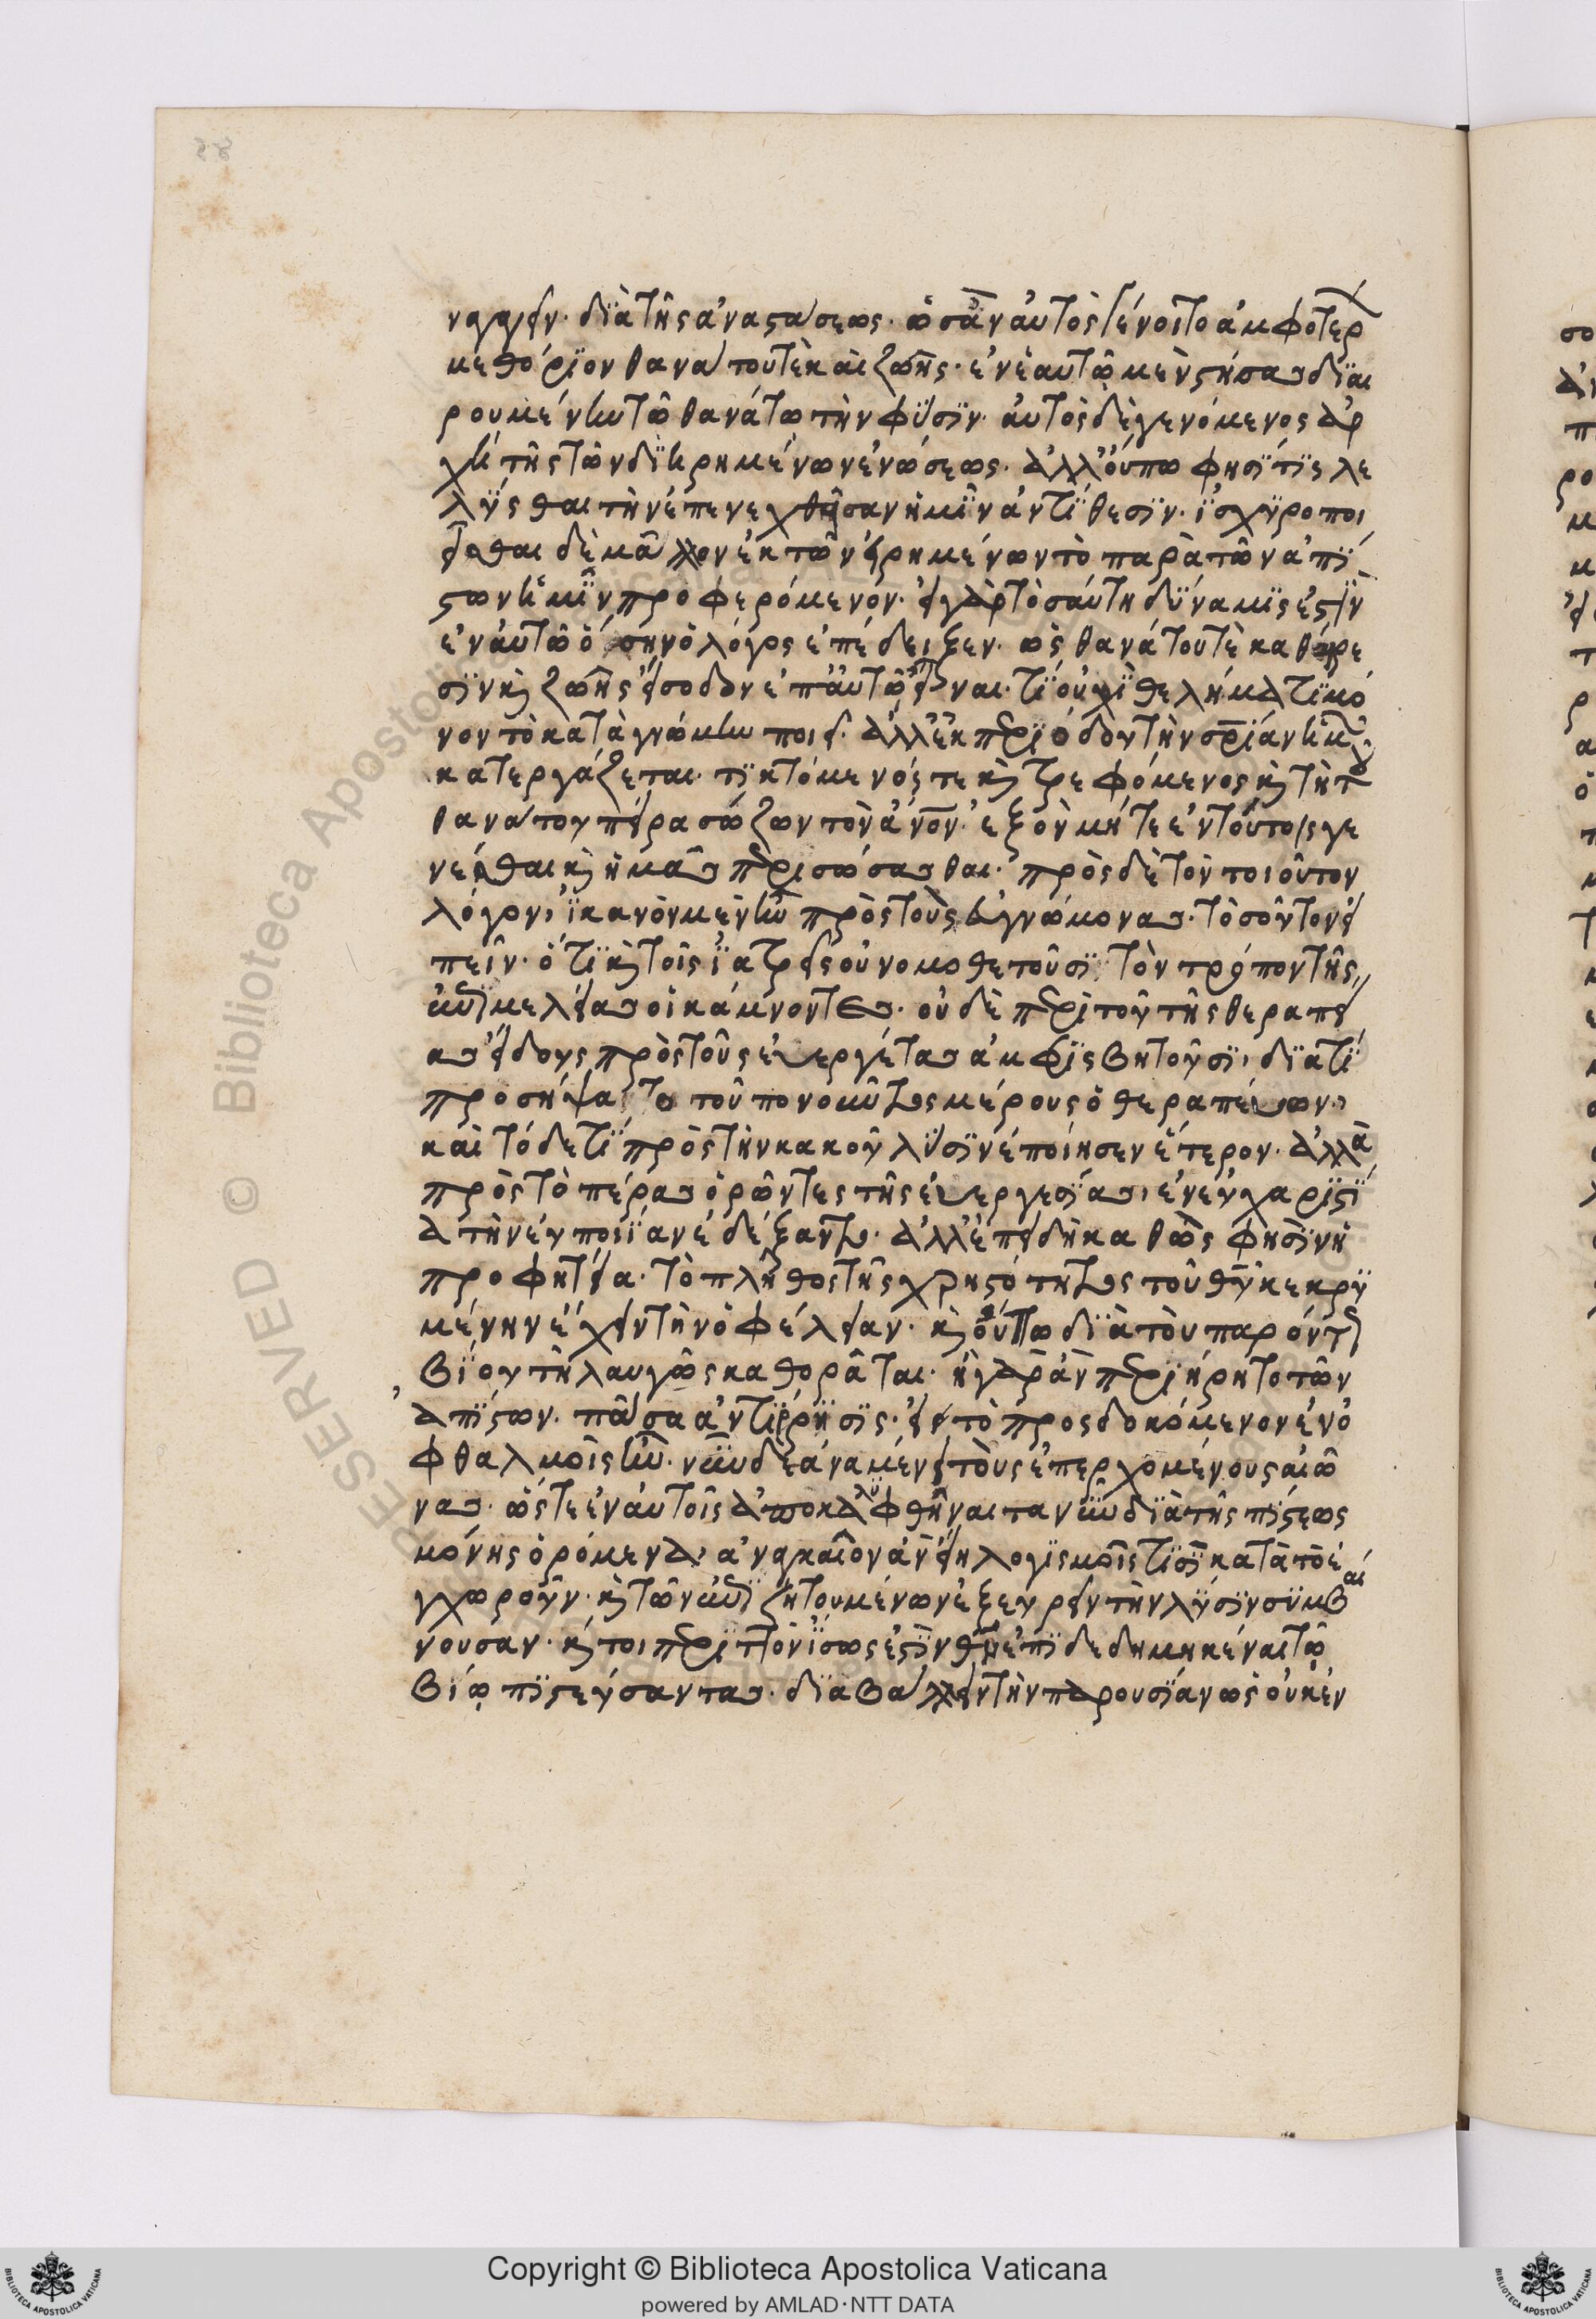 ναγαγεῖν· διὰ τῆς ἀναστάσεως· ὡς ἂν αὐτὸς γένοιτο ἀμφοτέρ
μεθόριον θανάτου τὲ καὶ ζωῆς· ἐν ἑαυτῷ μὲν στήσας διαι
ρουμένην τῷ θανάτω τὴν φύσιν· αὐτὸς δὲ γενόμενος ἀρ
χὴ τῆς τῶν διηρημένων ἑνώσεως· ἀλλ' οὔπω φησὶ τίς λε
λύσθαι τὴν ἐπενεχθῆσαν ἡμῖν ἀντίθεσιν· ἰσχυροποι
εῖσθαι δὲ μᾶλλον ἐκ τῶν εἰρημένων τὸ παρὰ τῶν ἀπί
στων ἡμῖν προφερόμενον· εἰ γὰρ τοσαύτη δύναμις ἐστὶν
ἐν αὐτῶ ὅσην ὁ λόγος ἐπέδειξεν· ὡς θανάτου τὲ καθαίρε
σιν κ ζωῆς εἴσοδον ἐπ' αὐτῷ εἶναι· τί οὐχὶ θελήματι μό
νον τὸ κατὰ γνώμην ποιεῖ· ἀλλ' ἐκ περιόδου τὴν σριάν ἡμῶν
κατεργάζεται· τικτόμενός τε κ τρεφόμενος κ τῆ τ
θανάτου πείρα σώζων τὸν ἄνον· ἐξὸν μήτε ἐν τούτοις γε
νέσθαι κ ἡμᾶς περισώσασθαι· πρὸς δὲ τὸν τοιοῦτον
λόγον, ἱκανὸν μὲν ἦν πρὸς τοὺς εὐγνώμονας· τοσοῦτον εἰ
πεῖν· ὅτι κ τοῖς ἰατρεῖς οὐ νομοθετοῦσι τὸν τρόπον τῆς
ἐπιμελείας οἱ κάμνοντες· οὐδὲ περὶ τοῦ τῆς θεραπεί
ας εἴδους πρὸς τοὺς εὐεργέτας ἀμφισβητοῦσι, διατί
προσήψατο τοῦ πονοῦντος μέρους ὁ θεραπεύων,
καὶ τόδε τί πρὸς τὴν κακοῦ λύσιν ἐποίησεν ἕτερον· ἀλλὰ
πρὸς τὸ πέρας ὁρῶντες τῆς εὐεργεσίας, ἐν εὐχαριστί
α τὴν εὐποιίαν ἐδέξαντο· ἀλλ' ἐπειδὴ καθώς φησιν ἡ
προφητεία· τὸ πλῆθος τῆς χρηστότητος τοῦ θυ κεκρυ
μένην ἔχειν τὴν ὀφέλειαν· κ οὔπω διὰ τοῦ παρόντος
βίου τηλαυγῶς καθορᾶται· ἦ γὰρ ἂν περιήρητο τῶν
ἀπίστων· πᾶσα ἀντίρρησις· εἰ τὸ προσδοκόμενον ἐν ὀ
φθαλμοῖς ἦν· νῦν δὲ ἀναμένει τοὺς ἐπερχομένους αἰῶ
νας· ὥστε ἐν αὐτοῖς ἀποκαλυφθῆναι τα νῦν διὰ τῆς πίστεως
μόνης ὁρόμενα· ἀναγκαῖον ἂν εἴη λογισμοῖς τισὶ κατὰ τὸ ἐ
γχωροῦν· κ τῶν ἐπιζητουμένων ἐξευρεῖν τὴν λύσιν συμβαί
νουσαν· κ τοι περιττὸν ἴσως ἐστὶν θν ἐπιδεδημηκέναι τῷ
βίῳ πιστεύσαντας· διαβάλλειν τὴν παρουσίαν ὡς οὐκ ἐν